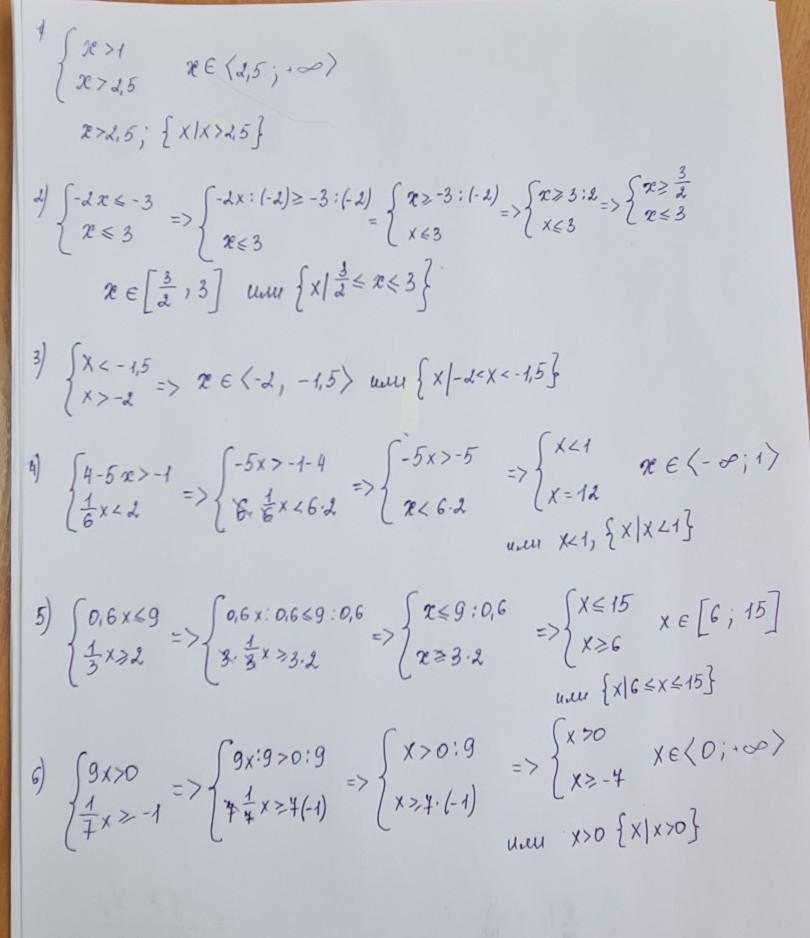 1) { x > 1 ; x > 2,5   x ∈ ⟨2,5 ; +∞⟩
x > 2,5 ; {x | x > 2,5}
2) { -2x ≤ -3 ; x ≤ 3 => { -2x : (-2) ≥ -3 : (-2) ; x ≤ 3 = { x ≥ -3 : (-2) ; x ≤ 3 => { x ≥ 3 : 2 ; x ≤ 3 => { x ≥ 3/2 ; x ≤ 3
x ∈ [3/2 , 3] или {x | 3/2 ≤ x ≤ 3}
3) { x < -1,5 ; x > -2 => x ∈ ⟨-2, -1,5⟩ или {x | -2 < x < -1,5}
4) { 4 - 5x > -1 ; 1/6 x < 2 => { -5x > -1 - 4 ; 6 · 1/6 x < 6 · 2 => { -5x > -5 ; x < 6 · 2 => { x < 1 ; x = 12   x ∈ ⟨-∞ ; 1⟩
или x < 1, {x | x < 1}
5) { 0,6x ≤ 9 ; 1/3 x ≥ 2 => { 0,6x : 0,6 ≤ 9 : 0,6 ; 3 · 1/3 x ≥ 3 · 2 => { x ≤ 9 : 0,6 ; x ≥ 3 · 2 => { x ≤ 15 ; x ≥ 6   x ∈ [6 ; 15]
или {x | 6 ≤ x ≤ 15}
6) { 9x > 0 ; 1/7 x ≥ -1 => { 9x : 9 > 0 : 9 ; 7 1/7 x ≥ 7(-1) => { x > 0 : 9 ; x ≥ 7 · (-1) => { x > 0 ; x ≥ -7   x ∈ ⟨0 ; +∞⟩
или x > 0 {x | x > 0}